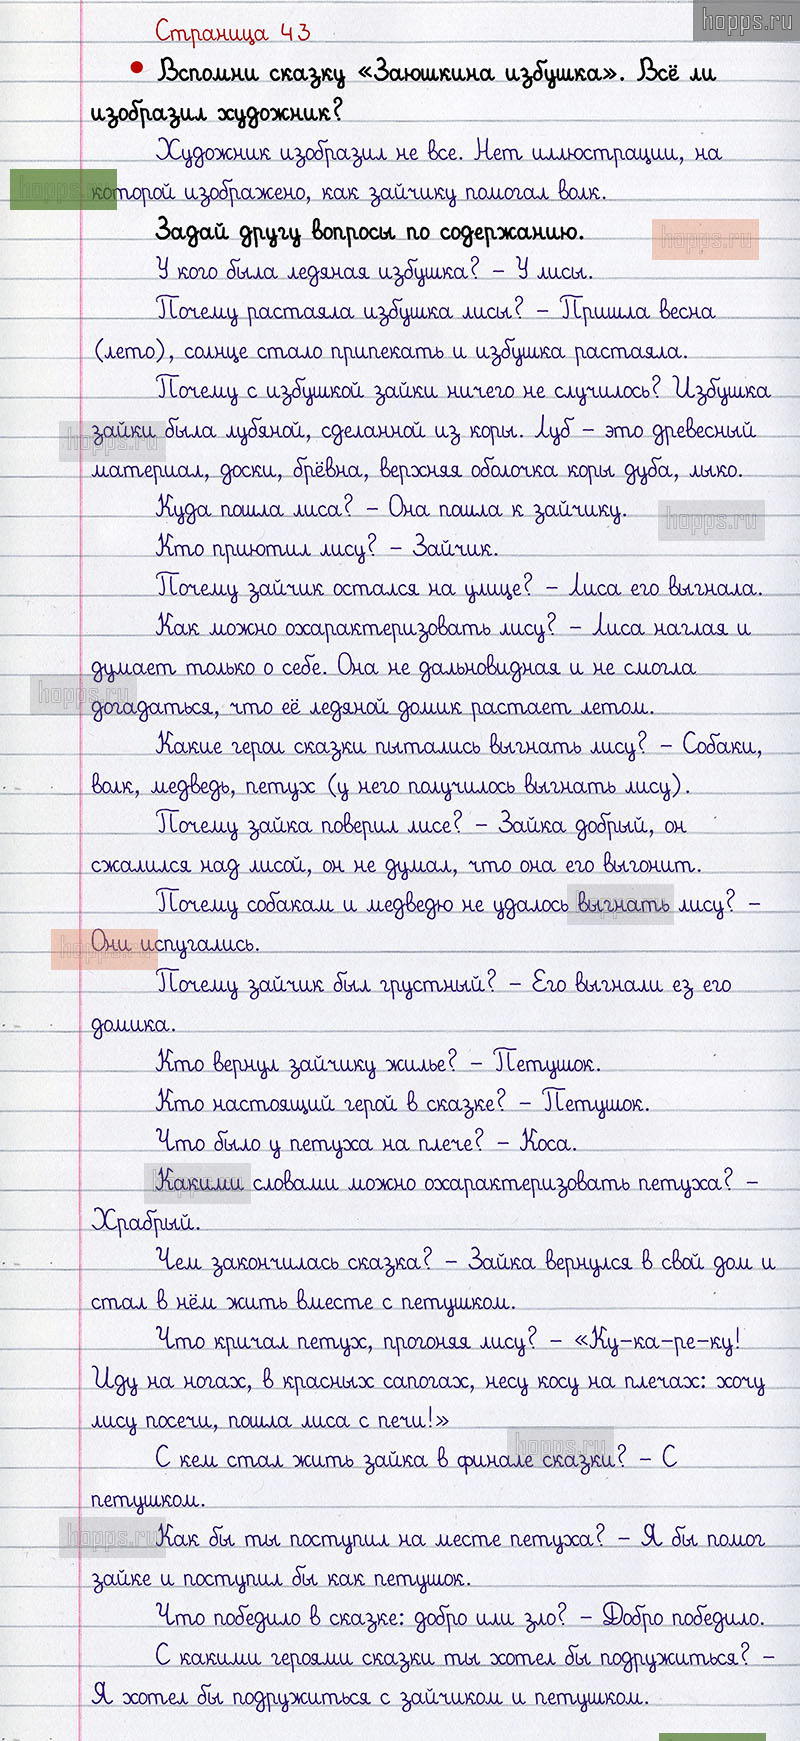 hopps.ru
Страница 43
• Вспомни сказку «Заюшкина избушка». Всё ли
изобразил художник?
Художник изобразил не все. Нет иллюстрации, на
hopps.ru
которой изображено, как зайчику помогал волк.
Задай другу вопросы по содержанию.
hopps.ru
У кого была ледяная избушка? – У лисы.
Почему растаяла избушка лисы? – Пришла весна
(лето), солнце стало припекать и избушка растаяла.
Почему с избушкой зайки ничего не случилось? Избушка
hopps.ru
зайки была лубяной, сделанной из коры. Луб – это древесный
материал, доски, брёвна, верхняя оболочка коры дуба, лыко.
Куда пошла лиса? – Она пошла к зайчику.
hopps.ru
Кто приютил лису? – Зайчик.
Почему зайчик остался на улице? – Лиса его выгнала.
Как можно охарактеризовать лису? – Лиса наглая и
думает только о себе. Она не дальновидная и не смогла
hopps.ru
догадаться, что её ледяной домик растает летом.
Какие герои сказки пытались выгнать лису? – Собаки,
волк, медведь, петух (у него получилось выгнать лису).
Почему зайка поверил лисе? – Зайка добрый, он
сжалился над лисой, он не думал, что она его выгонит.
Почему собакам и медведю не удалось выгнать лису? –
hopps.ru
Они испугались.
hopps.ru
Почему зайчик был грустный? – Его выгнали ез его
домика.
Кто вернул зайчику жилье? – Петушок.
Кто настоящий герой в сказке? – Петушок.
Что было у петуха на плече? – Коса.
Какими словами можно охарактеризовать петуха? –
hopps.ru
Храбрый.
Чем закончилась сказка? – Зайка вернулся в свой дом и
стал в нём жить вместе с петушком.
Что кричал петух, прогоняя лису? – «Ку-ка-ре-ку!
Иду на ногах, в красных сапогах, несу косу на плечах: хочу
лису посечи, пошла лиса с печи!»
hopps.ru
С кем стал жить зайка в финале сказки? – С
петушком.
hopps.ru
Как бы ты поступил на месте петуха? – Я бы помог
зайке и поступил бы как петушок.
Что победило в сказке: добро или зло? – Добро победило.
С какими героями сказки ты хотел бы подружиться? –
Я хотел бы подружиться с зайчиком и петушком.